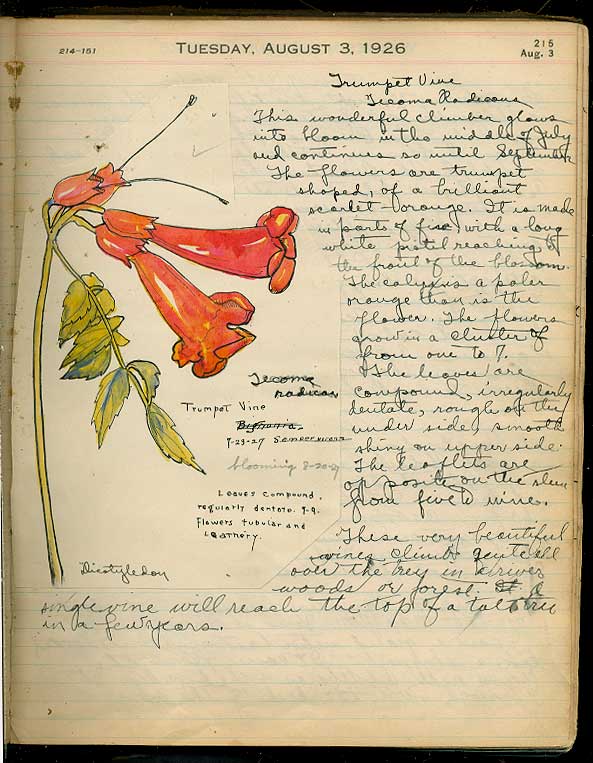 214-151
TUESDAY, AUGUST 3, 1926
215
Aug. 3
Trumpet Vine
Tecoma Radicans
This wonderful climber glows
into bloom in the middle of July
and continues so until September
The flowers are trumpet
shaped, of a brilliant
scarlet orange. It is made
in parts of five, with a long
white pistil reaching to
the front of the blossom.
The calyx is a paler
orange than is the
flower. The flowers
grow in a cluster of
from one to 7.
The leaves are
compound, irregularly
dentate, rough on the
under side, smooth
shiny on upper side.
The leaflets are
opposite on the stem
from five to nine.
These very beautiful
vines climb
over the in
woods or forest. A
single vine will reach the top of a tall tree
in a few years.
Tecoma
radican
Trumpet Vine
Bignonia.
7-29-27 Sempervirens
blooming 8-20-27
Leaves compound.
regularly dentate. 7-9.
Flowers tubular and
Leathery.
Dicotyledon